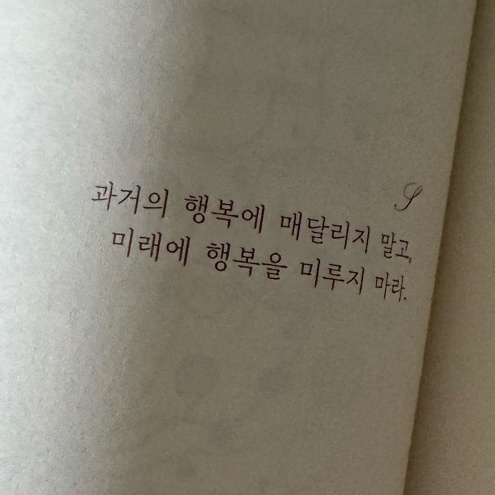 과거의 행복에 매달리지 말고,
미래에 행복을 미루지 마라.